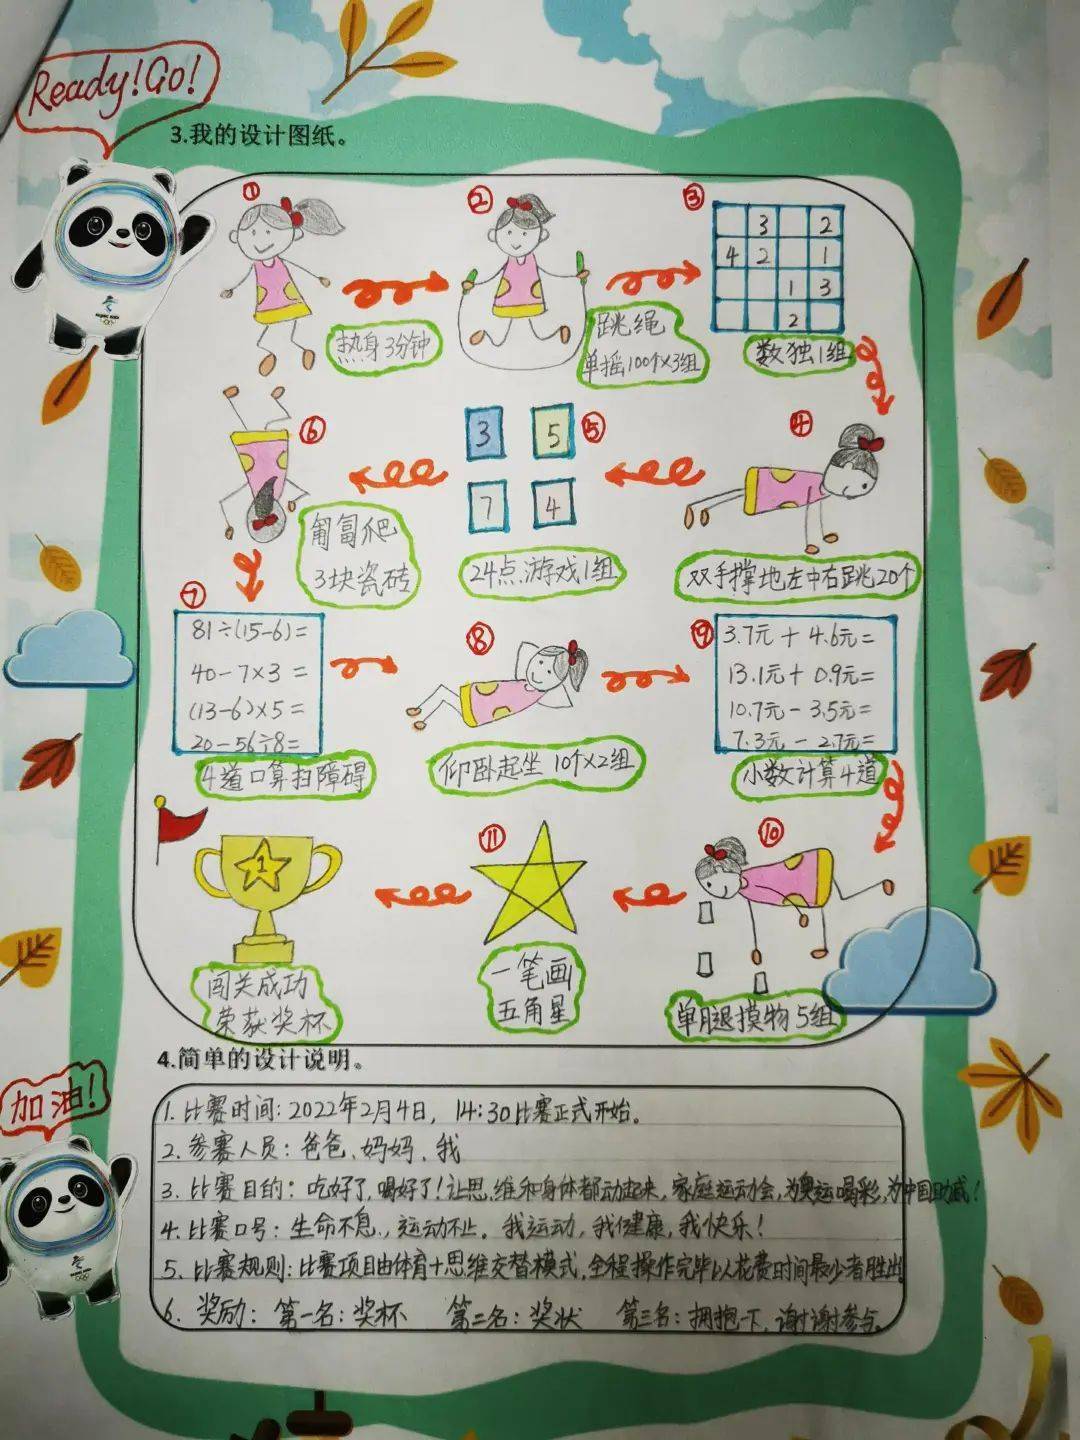 Ready!Go!
3.我的设计图纸。
① ② ③
3 2
4 2 1
1 3
2
热身3分钟
跳绳
单摇100个×3组
数独1组
⑥ 3 5 ⑤ ④
7 4
匍匐爬
3块瓷砖
24点游戏1组
双手撑地左中右跳20个
⑦
81÷(15-6)=
40-7×3=
(13-6)×5=
20-56÷8=
4道口算扫障碍
⑧
仰卧起坐 10个×2组
⑨
3.7元+4.6元=
13.1元+0.9元=
10.7元-3.5元=
7.3元-2.7元=
小数计算4道
1
⑪ ⑩
闯关成功
荣获奖杯
一笔画
五角星
单腿摸物5组
4.简单的设计说明。
加油!
1.比赛时间:2022年2月4日,14:30比赛正式开始。
2.参赛人员:爸爸、妈妈、我
3.比赛目的:吃好了,喝好了!让思维和身体都动起来,家庭运动会,为奥运喝彩,为中国助威!
4.比赛口号:生命不息,运动不止。我运动,我健康,我快乐!
5.比赛规则:比赛项目由体育+思维交替模式,全程操作完毕以花费时间最少者胜出
6.奖励:第一名:奖杯 第二名:奖状 第三名:拥抱一下,谢谢参与。